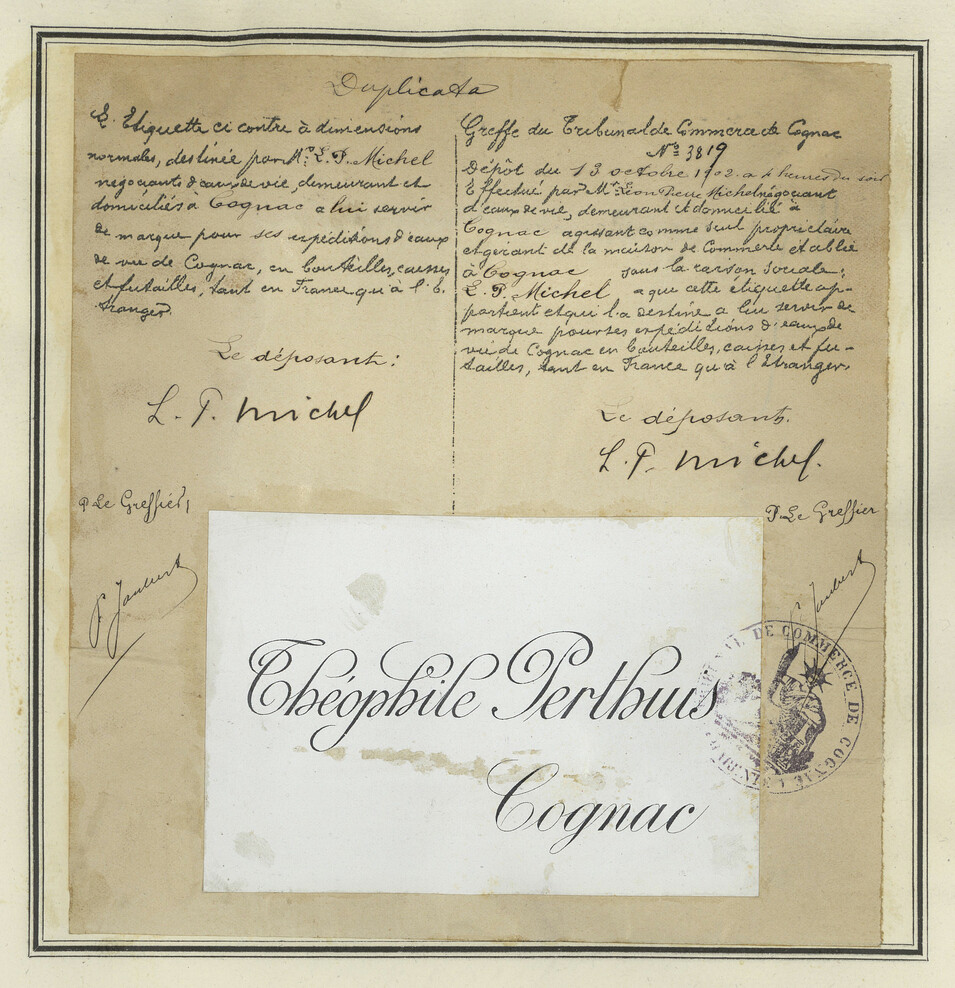 Duplicata
L'Etiquette ci contre à dimensions
normales, destinée par Mr. L. P. Michel
négociants d'eaux de vie, demeurant et
domiciliés à Cognac a lui servir
de marque pour ses expéditions d'eaux
de vie de Cognac, en bouteilles, caisses
et futailles, tant en France qu'à l'E-
tranger.
Le déposant:
L. P. Michel
P. Le Greffier,
P. Joubert
Greffe du Tribunal de Commerce de Cognac
No. 3819
Dépôt du 13 octobre 1902 à 4 heures du soir
Effectué par Mr. Léon Michel négociant
d'eaux de vie, demeurant et domicilié à
Cognac agissant comme seul propriétaire
et gérant de la maison de Commerce établie
à Cognac sous la raison sociale:
L. P. Michel a que cette étiquette ap-
partient et qui l'a destiné a lui servir de
marque pour ses expéditions d'eaux de
vie de Cognac en bouteilles, caisses et fu-
tailles, tant en France qu'à l'Etranger.
Le déposant.
L. P. Michel.
P. Le Greffier
P. Joubert
Théophile Perthuis
Cognac
TRIBUNAL DE COMMERCE DE COGNAC